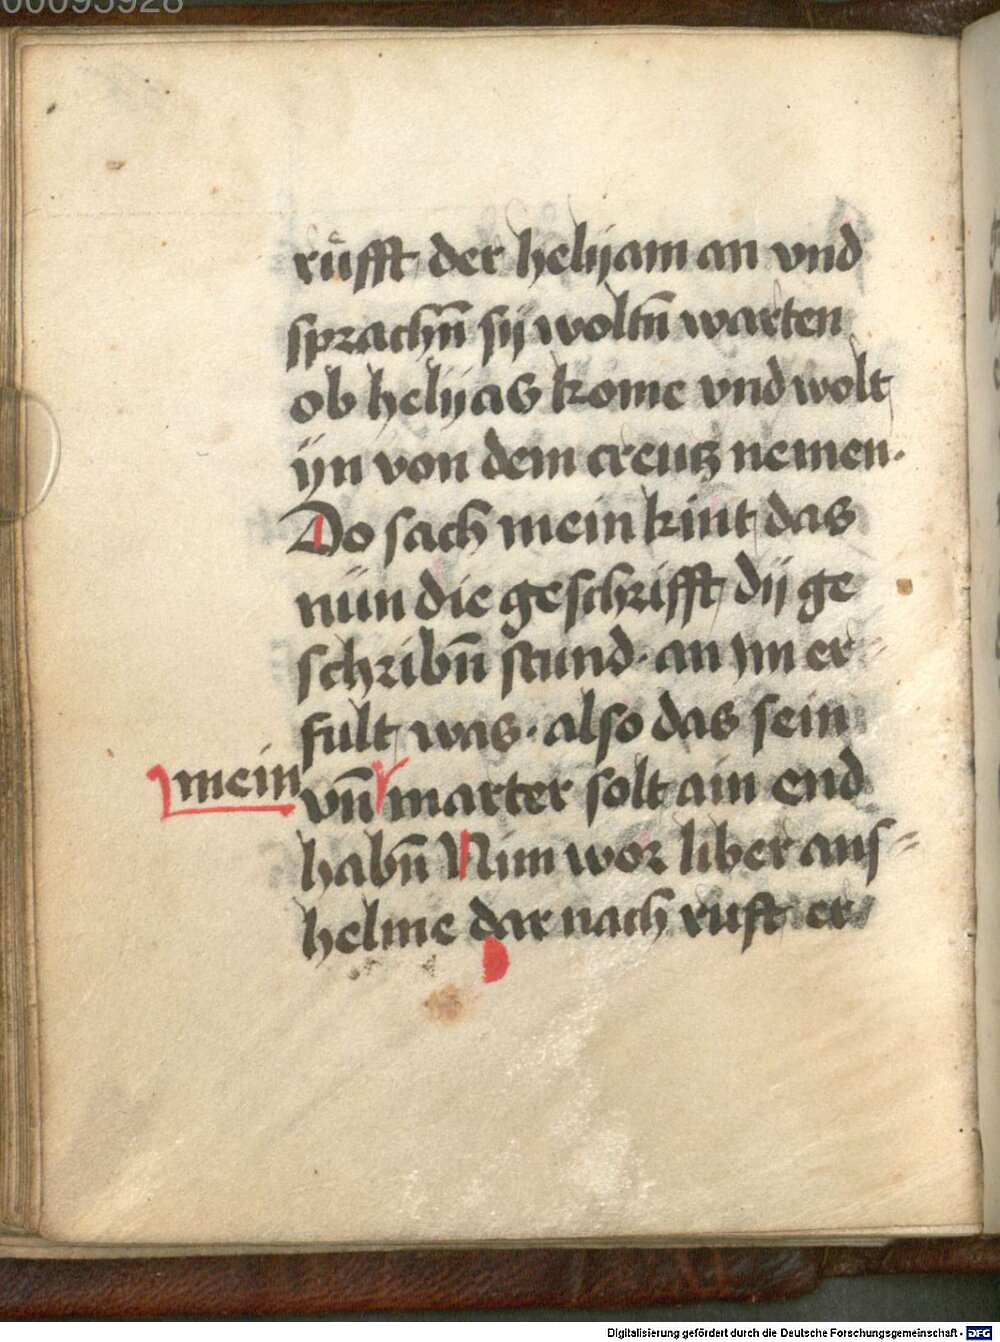 00095928
rüfft der helyam an vnd
sprachn̄ sij woltn̄ warten
ob helyas kome vnd wolt
ijn von dem creutz nemen.
Do sach mein kint das
nün die geschrifft dij ge
schribn̄ stund· an ym er-
fult was· also das sein
mein
vn̄ marter solt ain end
habn̄ Nim wor liber ans-
helme dar nach ruft er
Digitalisierung gefördert durch die Deutsche Forschungsgemeinschaft - DFG